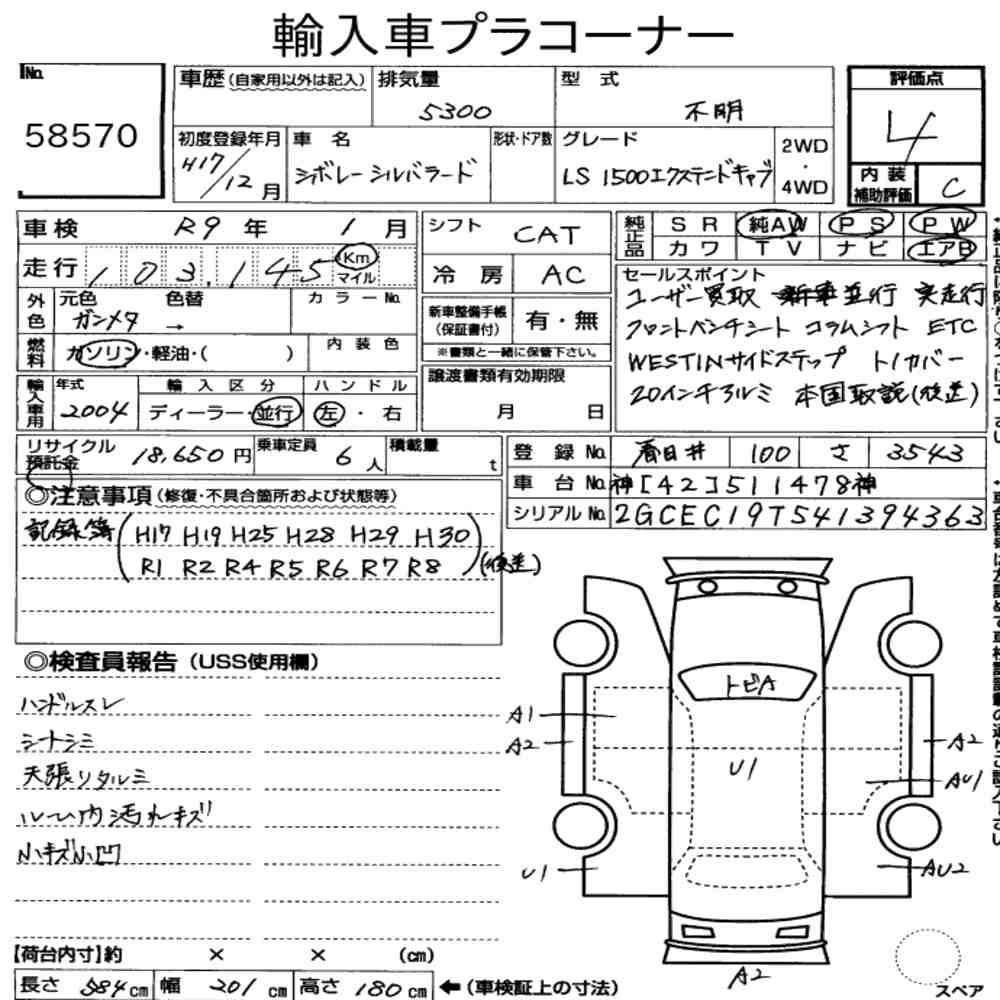 輸入車プラコーナー
No.
58570
車歴(自家用以外は記入)
排気量
5300
型 式
不明
評価点
4
初度登録年月
H17/12月
車 名
シボレー シルバラード
形状・ドア数
グレード
LS 1500エクステンドキャブ
2WD
・
4WD
内 装
補助評価
C
車検 R9年 1月
走行 103,145 Km
マイル
シフト CAT
冷 房 AC
純正品
SR 純AW PS PW
カワ TV ナビ エアB
外色
元色 色替
ガンメタ →
カラーNo.
燃料
ガソリン・軽油・( )
内 装 色
新車整備手帳
(保証書付)
有・無
※書類と一緒に保管下さい。
セールスポイント
ユーザー買取 並行 実走行
フロントベンチシート コラムシフト ETC
WESTINサイドステップ トノカバー
20インチアルミ 本国取説(後送)
輸入車用
年式
2004
輸 入 区 分
ディーラー・並行
ハ ン ド ル
左・右
譲渡書類有効期限
月 日
リサイクル
預託金
18,650円
乗車定員
6人
積載量
t
登 録 No. 春日井 100 さ 3543
車 台 No. 神[42]511478神
シリアルNo. 2GCEC19T541394363
◎注意事項(修復・不具合箇所および状態等)
記録簿 (H17 H19 H25 H28 H29 H30
R1 R2 R4 R5 R6 R7 R8)(後送)
◎検査員報告(USS使用欄)
ハンドルスレ
シートシミ
天張りタルミ
ルーム内汚れキズ
小キズ小凹
トビA
A1
A2
U1
A2
AU1
U1
AU2
A2
スペア
【荷台内寸】約 × × (cm)
長さ 584cm 幅 201cm 高さ 180cm ←(車検証上の寸法)